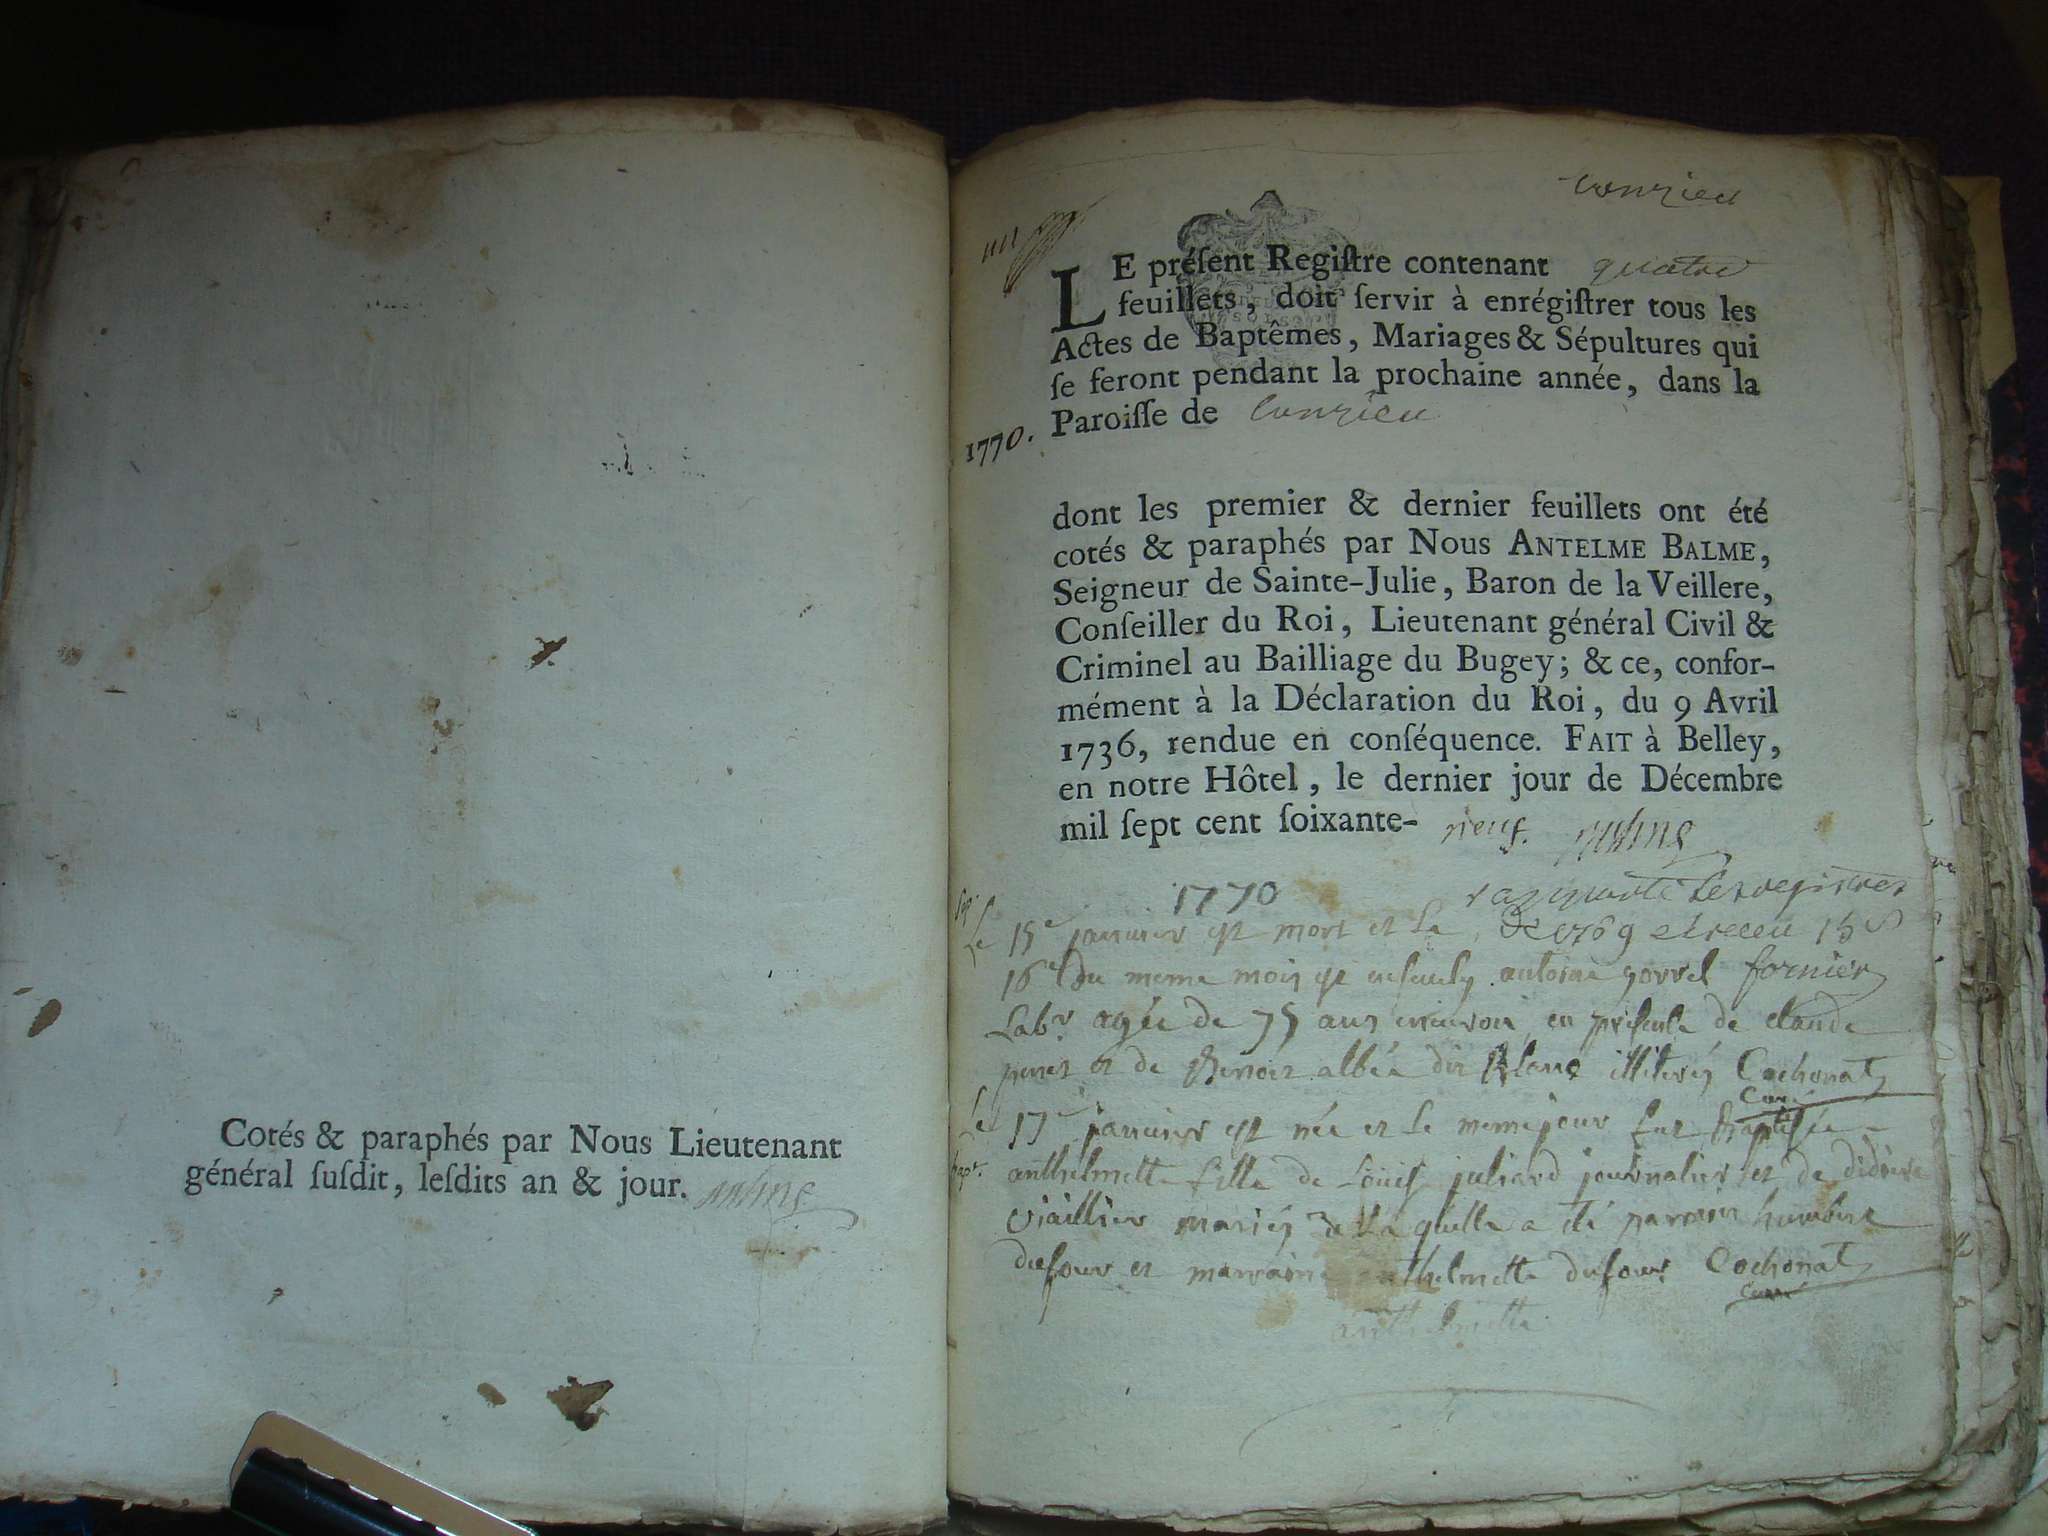 Cotés & paraphés par Nous Lieutenant
général ſuſdit, leſdits an & jour.
LE préſent Regiſtre contenant quatre
feuillets, doit ſervir à enrégiſtrer tous les
Actes de Baptêmes, Mariages & Sépultures qui
ſe feront pendant la prochaine année, dans la
Paroiſſe de
1770.
dont les premier & dernier feuillets ont été
cotés & paraphés par Nous ANTELME BALME,
Seigneur de Sainte-Julie, Baron de la Veillere,
Conſeiller du Roi, Lieutenant général Civil &
Criminel au Bailliage du Bugey; & ce, confor-
mément à la Déclaration du Roi, du 9 Avril
1736, rendue en conſéquence. FAIT à Belley,
en notre Hôtel, le dernier jour de Décembre
mil ſept cent ſoixante- neuf.
1770
les registres
de 1769 et receu 15 s
fornier
Le 15e janvier est mort et le
16e du meme mois est antoine
Labr agée de 75 ans environ en de claude
et de Benoit albéa dit Blanc illiterés Cochonat
Curé
Le 17e janvier est née et le meme jour fut Baptisée
bapt. anthelmette fille de Loüis juliard journalier et de
mariés de La quelle a été parrain humbert
dufour et marraine anthelmette dufour Cochonat
Curé
anthelmette